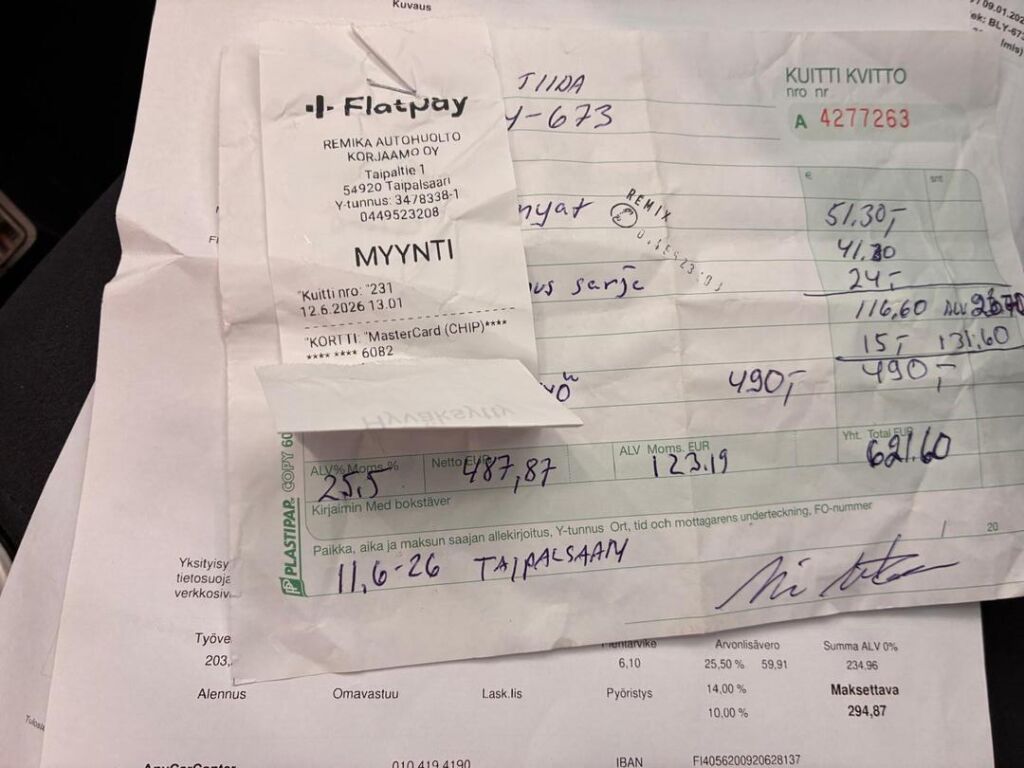 Kuvaus
09.01.202
ek: BLY-673
lmis)
TIIDA
Y-673
KUITTI KVITTO
nro nr
A 4277263
Flatpay
REMIKA AUTOHUOLTO
KORJAAMO OY
Taipaltie 1
54920 Taipalsaari
Y-tunnus: 3478338-1
0449523208
MYYNTI
"Kuitti nro: "231
12.6.2026 13.01
"KORTTI: "MasterCard (CHIP)****
**** **** 6082
Hyväksytty
€ snt
nyat
REMIX
51.30,-
41.30
us sarja 24,-
116,60 ALV
15,- 131.60
490,- 490,-
ALV% Moms.% Netto EUR ALV Moms. EUR Yht. Total EUR
25,5 487,87 123.19 621.60
Kirjaimin Med bokstäver
Paikka, aika ja maksun saajan allekirjoitus, Y-tunnus Ort, tid och mottagarens underteckning, FO-nummer
/ 20
11,6-26 TAIPALSAARI
PLASTIPAP. COPY 60
Yksityisy
tietosuoja
verkkosiv
Työve
203,
Arvonlisävero Summa ALV 0%
6,10 25,50 % 59,91 234,96
Alennus Omavastuu Lask.lis Pyöristys 14,00 % Maksettava
10,00 % 294,87
010 419 4190 IBAN FI4056200920628137